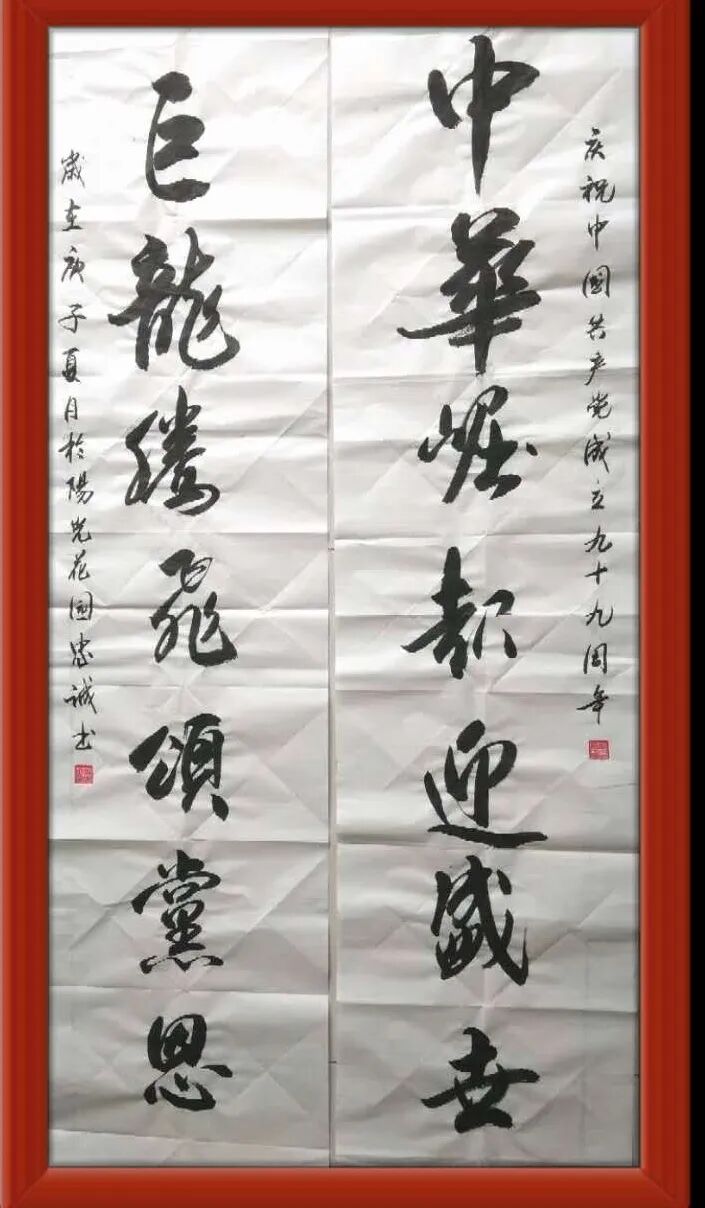 庆祝中國共产党成立九十九周年
中華崛起迎盛世
巨龍騰飛頌黨恩
歲在庚子夏月於陽光花園忠诚书